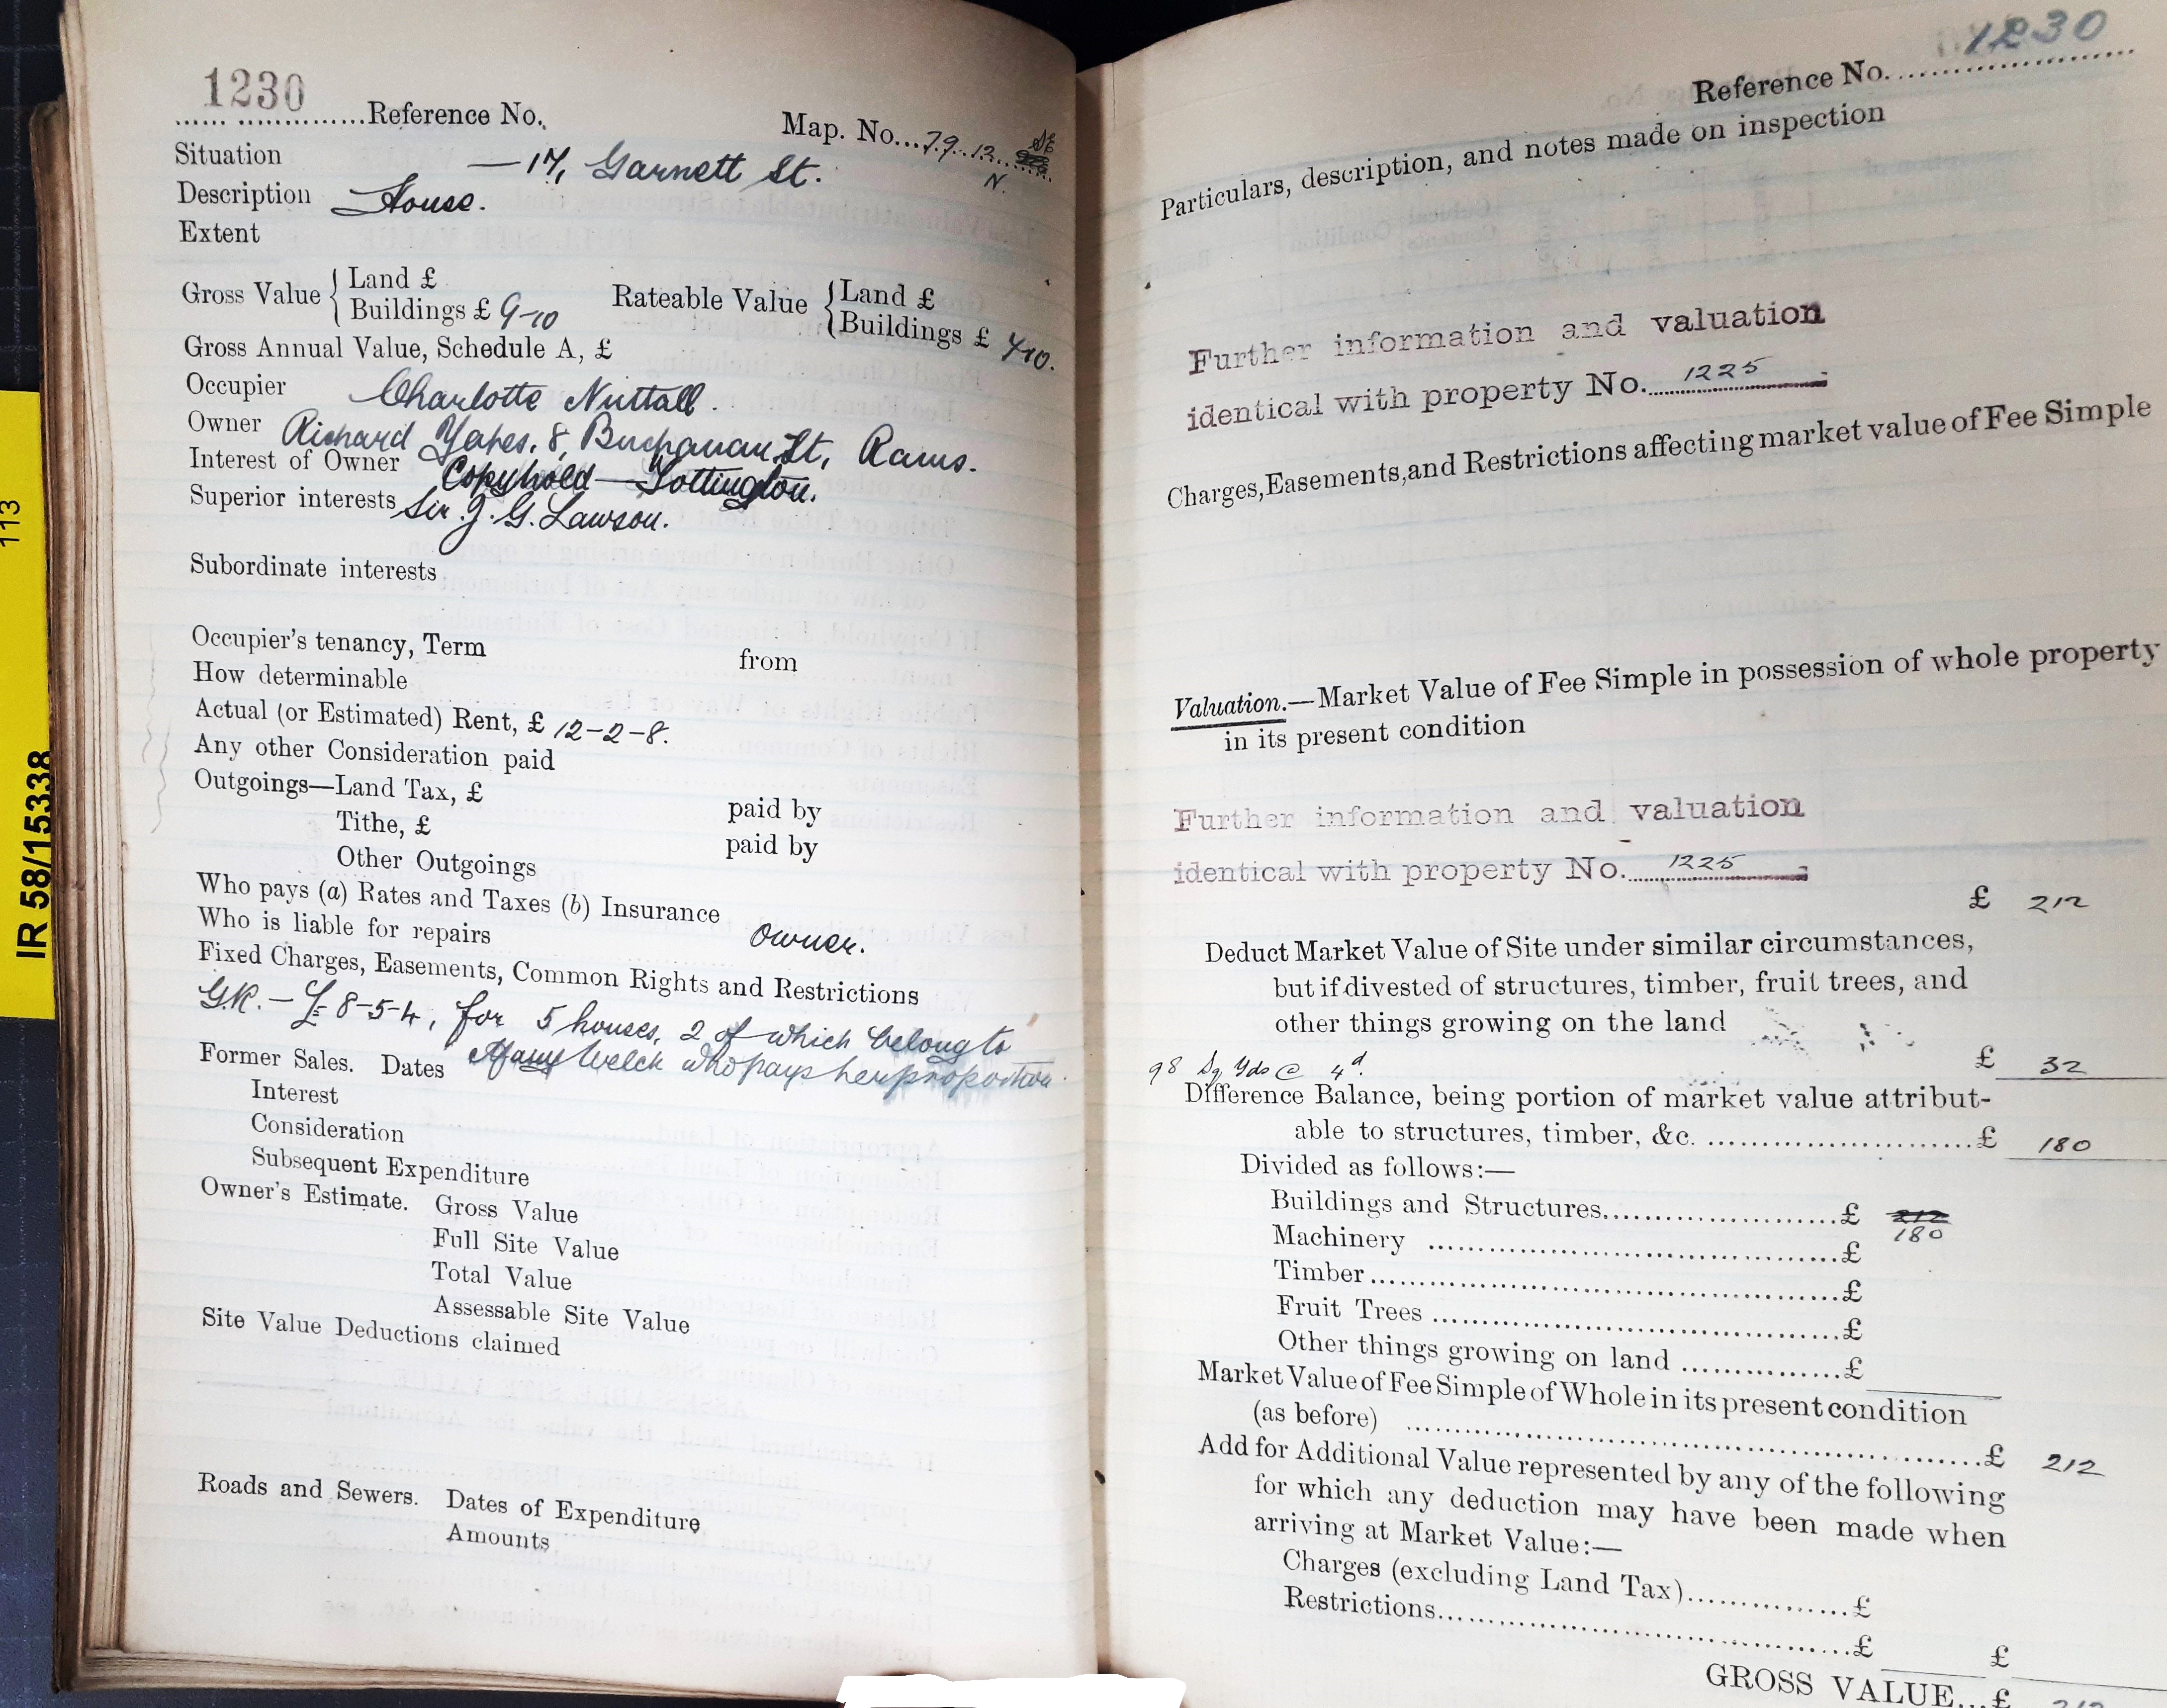 1230
Reference No.
Map. No. 79.12
N.
Situation — 17, Garnett St.
Description House.
Extent
Gross Value { Land £
Buildings £ 9-10
Rateable Value { Land £
Buildings £
Gross Annual Value, Schedule A, £
Occupier Charlotte Nuttall.
Owner Richard Yates, 8, Buchanan St, Rams.
Interest of Owner Copyhold — Tottington.
Superior interests Sir J. G. Lawson.
Subordinate interests
Occupier's tenancy, Term from
How determinable
Actual (or Estimated) Rent, £ 12-2-8.
Any other Consideration paid
Outgoings—Land Tax, £ paid by
Tithe, £ paid by
Other Outgoings
Who pays (a) Rates and Taxes (b) Insurance
Who is liable for repairs Owner.
Fixed Charges, Easements, Common Rights and Restrictions
G.R. — £8-5-4, for 5 houses, 2 of which belong to
Former Sales. Dates Mary Welch who pays her proportion.
Interest
Consideration
Subsequent Expenditure
Owner's Estimate. Gross Value
Full Site Value
Total Value
Assessable Site Value
Site Value Deductions claimed
Roads and Sewers. Dates of Expenditure
Amounts
113
IR 58/15338
1230
Reference No.
Particulars, description, and notes made on inspection
Further information and valuation
identical with property No. 1225
Charges, Easements, and Restrictions affecting market value of Fee Simple
Valuation.—Market Value of Fee Simple in possession of whole property
in its present condition
Further information and valuation
identical with property No. 1225
£ 212
Deduct Market Value of Site under similar circumstances,
but if divested of structures, timber, fruit trees, and
other things growing on the land
£ 32
98 Sq Yds @ 4d.
Difference Balance, being portion of market value attribut-
able to structures, timber, &c. £ 180
Divided as follows:—
Buildings and Structures £ 212
180
Machinery £
Timber £
Fruit Trees £
Other things growing on land £
Market Value of Fee Simple of Whole in its present condition
(as before) £ 212
Add for Additional Value represented by any of the following
for which any deduction may have been made when
arriving at Market Value:—
Charges (excluding Land Tax) £
Restrictions £ £
GROSS VALUE...£ 212